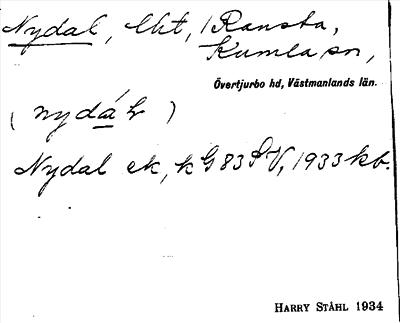 Nydal, lht, / Ransta,
Kumla sn,
Övertjurbo hd, Västmanlands län.
( nydál )
Nydal ek, k G 83 SV, 1933 kb.
HARRY STÅHL 1934